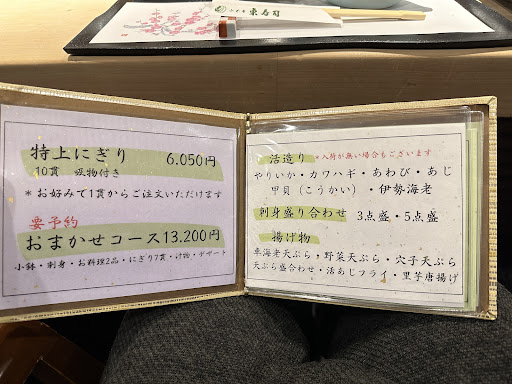 東寿司
特上にぎり 6.050円
10貫 吸物付き
*お好みで1貫からご注文いただけます
要予約
おまかせコース 13.200円
小鉢・刺身・お料理2品・にぎり7貫・汁物・デザート
活造り *入荷が無い場合もございます
やりいか・カワハギ・あわび・あじ
甲貝(こうかい)・伊勢海老
刺身盛り合わせ 3点盛・5点盛
揚げ物
車海老天ぷら・野菜天ぷら・穴子天ぷら
天ぷら盛合わせ・活あじフライ・里芋唐揚げ